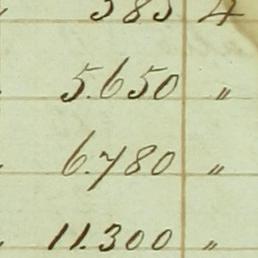 385 4
5.650 "
6.780 "
11.300 "